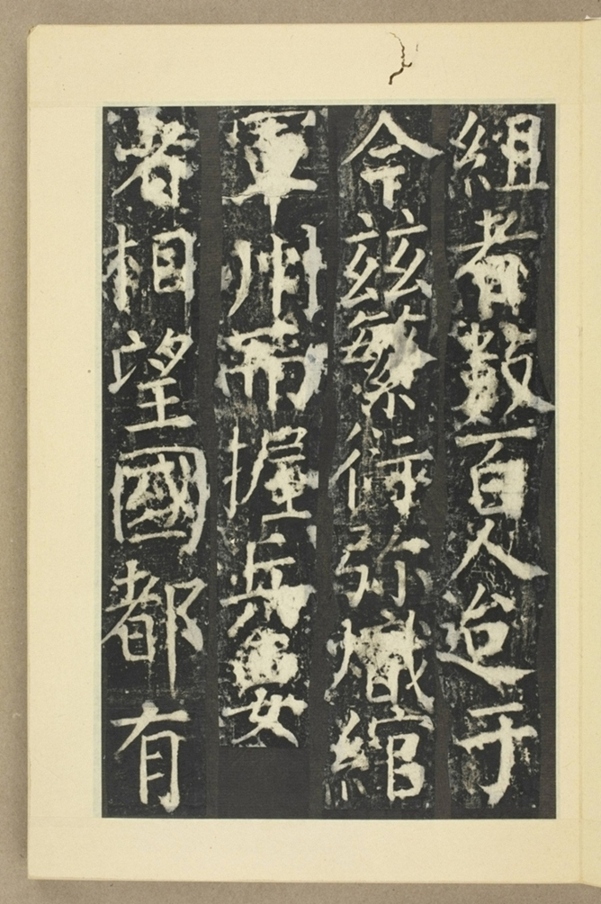 組者數百人迨于
今茲繁衍弥熾綰
軍州而握兵要
者相望國都有